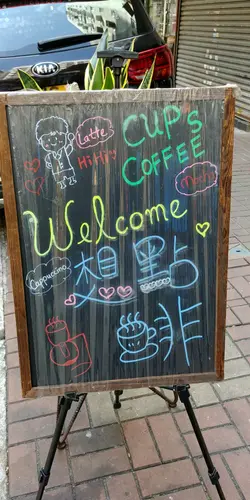 KIA
Latte
Hi Hi
CUP's
COFFEE
Mocha
Welcome
Cappuccino
想點
啡